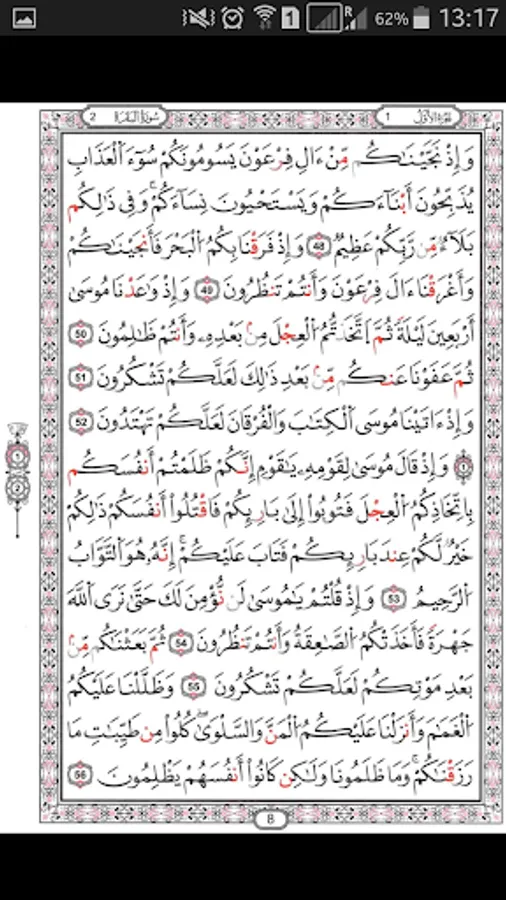 R
1
62%
13:17
2
سورة البقرة
1
وَإِذْ نَجَّيْنَٰكُم مِّنْ ءَالِ فِرْعَوْنَ يَسُومُونَكُمْ سُوٓءَ ٱلْعَذَابِ
يُذَبِّحُونَ أَبْنَآءَكُمْ وَيَسْتَحْيُونَ نِسَآءَكُمْ وَفِى ذَٰلِكُم
بَلَآءٌ مِّن رَّبِّكُمْ عَظِيمٌ 48 وَإِذْ فَرَقْنَا بِكُمُ ٱلْبَحْرَ فَأَنجَيْنَٰكُمْ
وَأَغْرَقْنَا ءَالَ فِرْعَوْنَ وَأَنتُمْ تَنظُرُونَ 49 وَإِذْ وَٰعَدْنَا مُوسَىٰ
أَرْبَعِينَ لَيْلَةً ثُمَّ ٱتَّخَذتُّمُ ٱلْعِجْلَ مِنۢ بَعْدِهِۦ وَأَنتُمْ ظَٰلِمُونَ 50
ثُمَّ عَفَوْنَا عَنكُم مِّنۢ بَعْدِ ذَٰلِكَ لَعَلَّكُمْ تَشْكُرُونَ 51
وَإِذْ ءَاتَيْنَا مُوسَى ٱلْكِتَٰبَ وَٱلْفُرْقَانَ لَعَلَّكُمْ تَهْتَدُونَ 52
وَإِذْ قَالَ مُوسَىٰ لِقَوْمِهِۦ يَٰقَوْمِ إِنَّكُمْ ظَلَمْتُمْ أَنفُسَكُم
بِٱتِّخَاذِكُمُ ٱلْعِجْلَ فَتُوبُوٓا۟ إِلَىٰ بَارِئِكُمْ فَٱقْتُلُوٓا۟ أَنفُسَكُمْ ذَٰلِكُمْ
خَيْرٌ لَّكُمْ عِندَ بَارِئِكُمْ فَتَابَ عَلَيْكُمْ إِنَّهُۥ هُوَ ٱلتَّوَّابُ
ٱلرَّحِيمُ 53 وَإِذْ قُلْتُمْ يَٰمُوسَىٰ لَن نُّؤْمِنَ لَكَ حَتَّىٰ نَرَى ٱللَّهَ
جَهْرَةً فَأَخَذَتْكُمُ ٱلصَّٰعِقَةُ وَأَنتُمْ تَنظُرُونَ 54 ثُمَّ بَعَثْنَٰكُم مِّنۢ
بَعْدِ مَوْتِكُمْ لَعَلَّكُمْ تَشْكُرُونَ 55 وَظَلَّلْنَا عَلَيْكُمُ
ٱلْغَمَامَ وَأَنزَلْنَا عَلَيْكُمُ ٱلْمَنَّ وَٱلسَّلْوَىٰ كُلُوا۟ مِن طَيِّبَٰتِ مَا
رَزَقْنَٰكُمْ وَمَا ظَلَمُونَا وَلَٰكِن كَانُوٓا۟ أَنفُسَهُمْ يَظْلِمُونَ 56
8